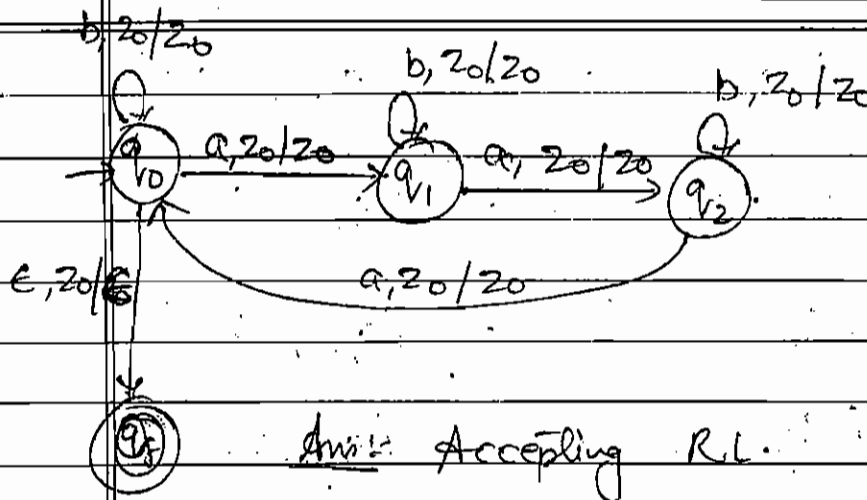 b, z0/z0
b, z0/z0
b, z0/z0
a, z0/z0
a, z0/z0
q0
q1
q2
ε, z0/
a, z0/z0
qf
Ans:- Accepting R.L.